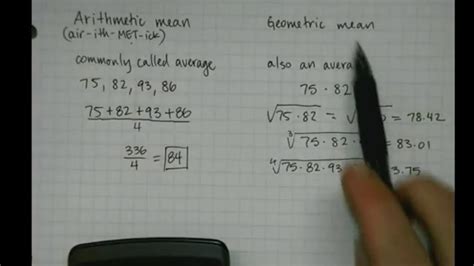 Arithmetic mean
(air-ith-MET-ick)
commonly called average
75, 82, 93, 86
75+82+93+86
4
336
4
= 84
Geometric mean
also an avera
75 · 82
√75·82 = √ 0 = 78.42
∛75·82· = 83.01
∜75·82·93 3.75